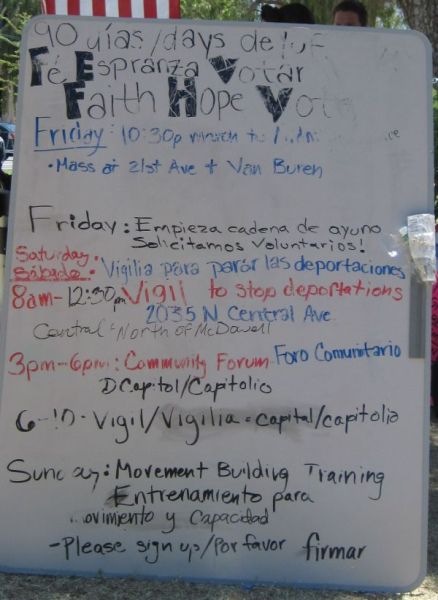 90 días/days de
Fé Espranza Votar
Faith Hope Vote
Friday: 10:30p march to
• Mass at 21st Ave + Van Buren
Friday: Empieza cadena de ayuno
Solicitamos Voluntarios!
Saturday
Sábado: Vigilia para parar las deportaciones
8am-12:30pm Vigil to stop deportations
2035 N Central Ave
Central North of McDowell
3pm-6pm: Community Forum Foro Comunitario
Capitol/Capitolio
6-10- Vigil/Vigilia - Capital/capitolio
Sunday: Movement Building Training
Entrenamiento para
ovimiento y Capacidad
-Please sign up/Por favor firmar